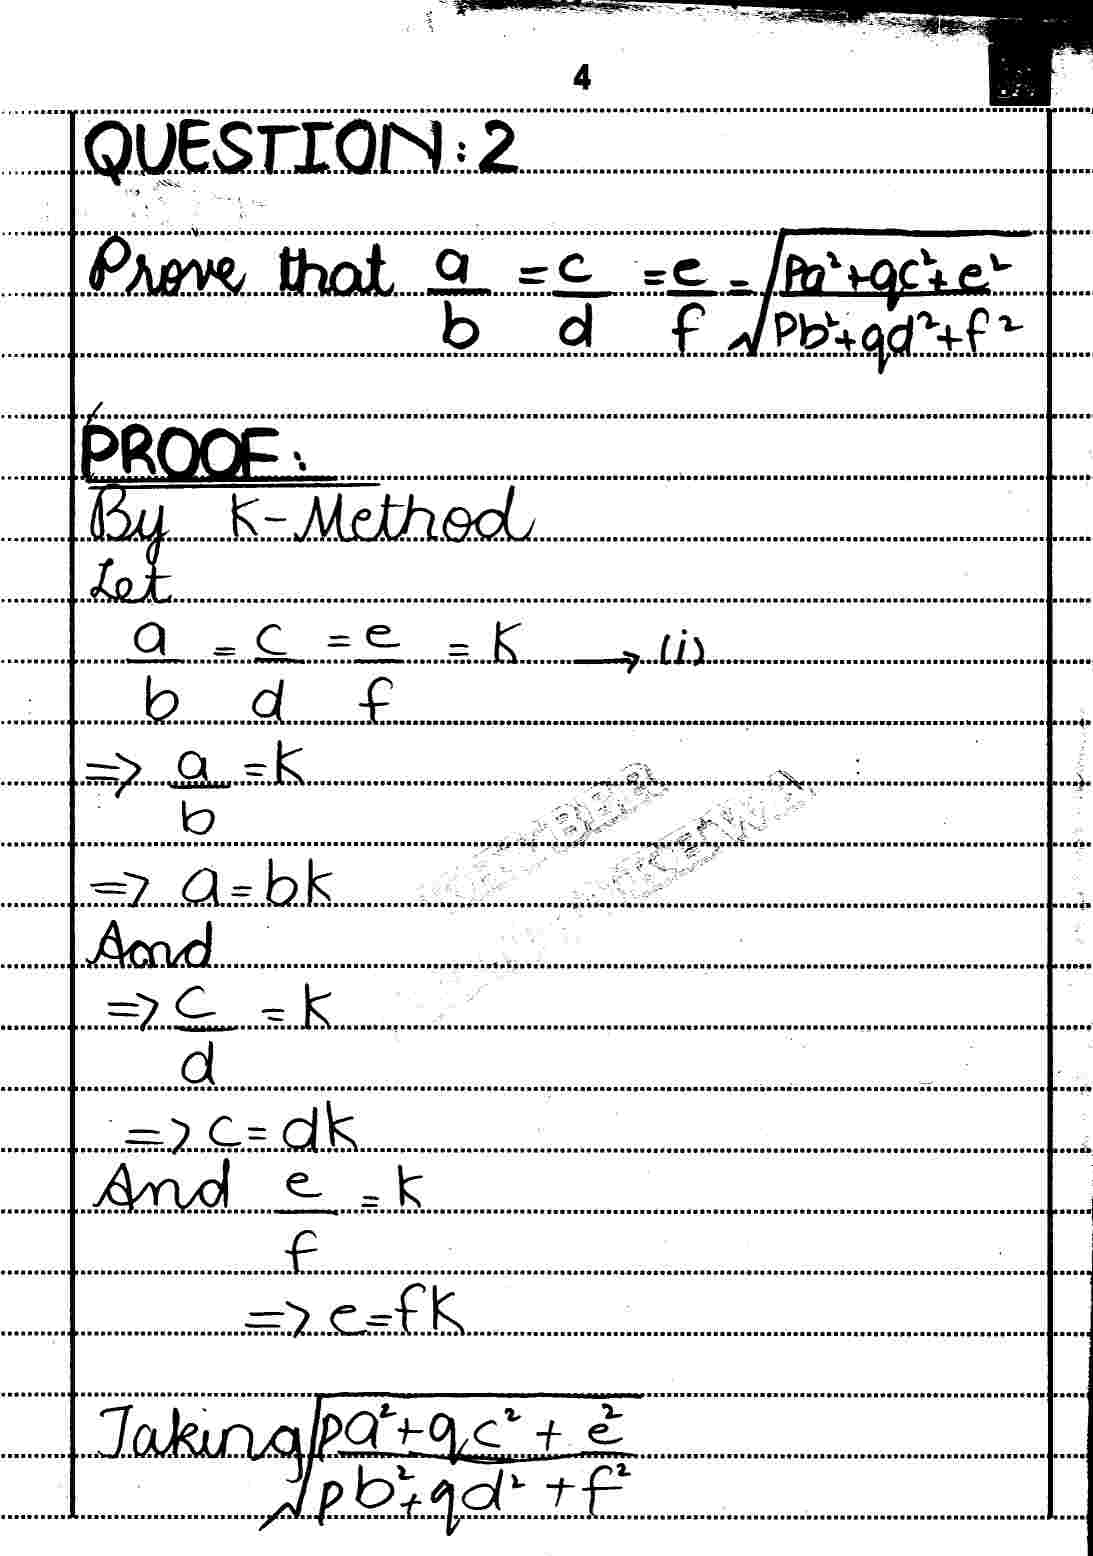 4
QUESTION: 2
Prove that a/b = c/d = e/f = √(Pa²+qc²+e² / Pb²+qd²+f²)
PROOF:
By K-Method
Let
a/b = c/d = e/f = K → (i)
=> a/b = K
=> a = bk
Aand
=> c/d = k
=> c = dk
And e/f = k
=> e = fk
Taking √(pa²+qc²+e² / pb²+qd²+f²)